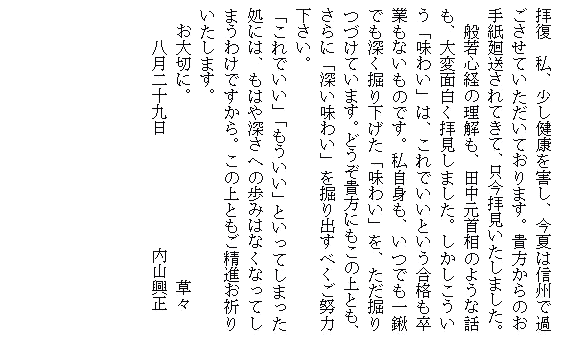 拝復　私、少し健康を害し、今夏は信州で過
ごさせていただいております。貴方からのお
手紙廻送されてきて、只今拝見いたしました。
　般若心経の理解も、田中元首相のような話
も、大変面白く拝見しました。しかしこうい
う「味わい」は、これでいいという合格も卒
業もないものです。私自身も、いつでも一鍬
でも深く掘り下げた「味わい」を、ただ掘り
つづけています。どうぞ貴方にもこの上とも、
さらに「深い味わい」を掘り出すべくご努力
下さい。
「これでいい」「もういい」といってしまった
処には、もはや深さへの歩みはなくなってし
まうわけですから。この上ともご精進お祈り
いたします。
　お大切に。　　　　　　　　　　　草々
　　八月二十九日　　　　　　内山興正